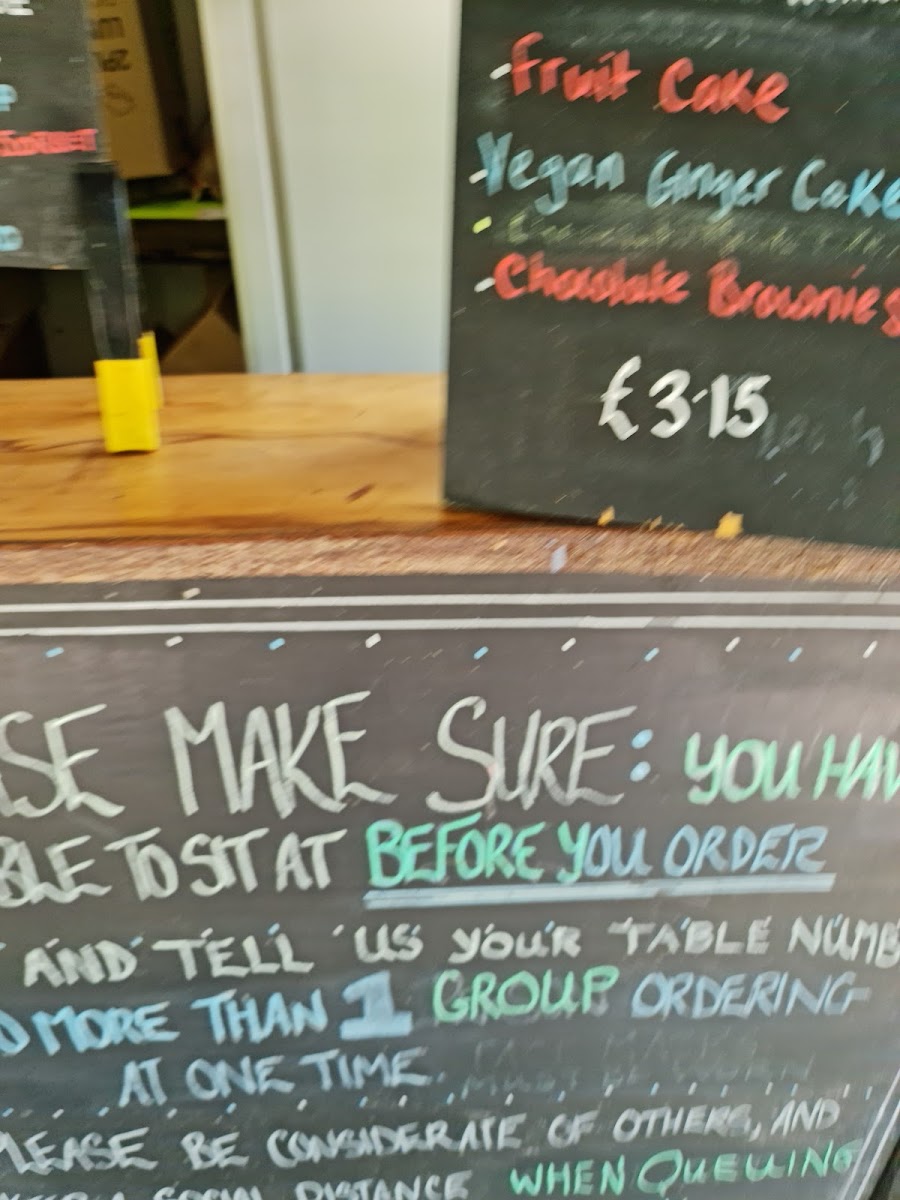 - Fruit Cake
- Vegan Ginger Cake
- Chocolate Brownies
£3.15
SE MAKE SURE: YOU HAV
BLE TO SIT AT BEFORE YOU ORDER
AND TELL US YOUR TABLE NUMB
O MORE THAN 1 GROUP ORDERING
AT ONE TIME.
PLEASE BE CONSIDERATE OF OTHERS, AND
SOCIAL DISTANCE WHEN QUEUING